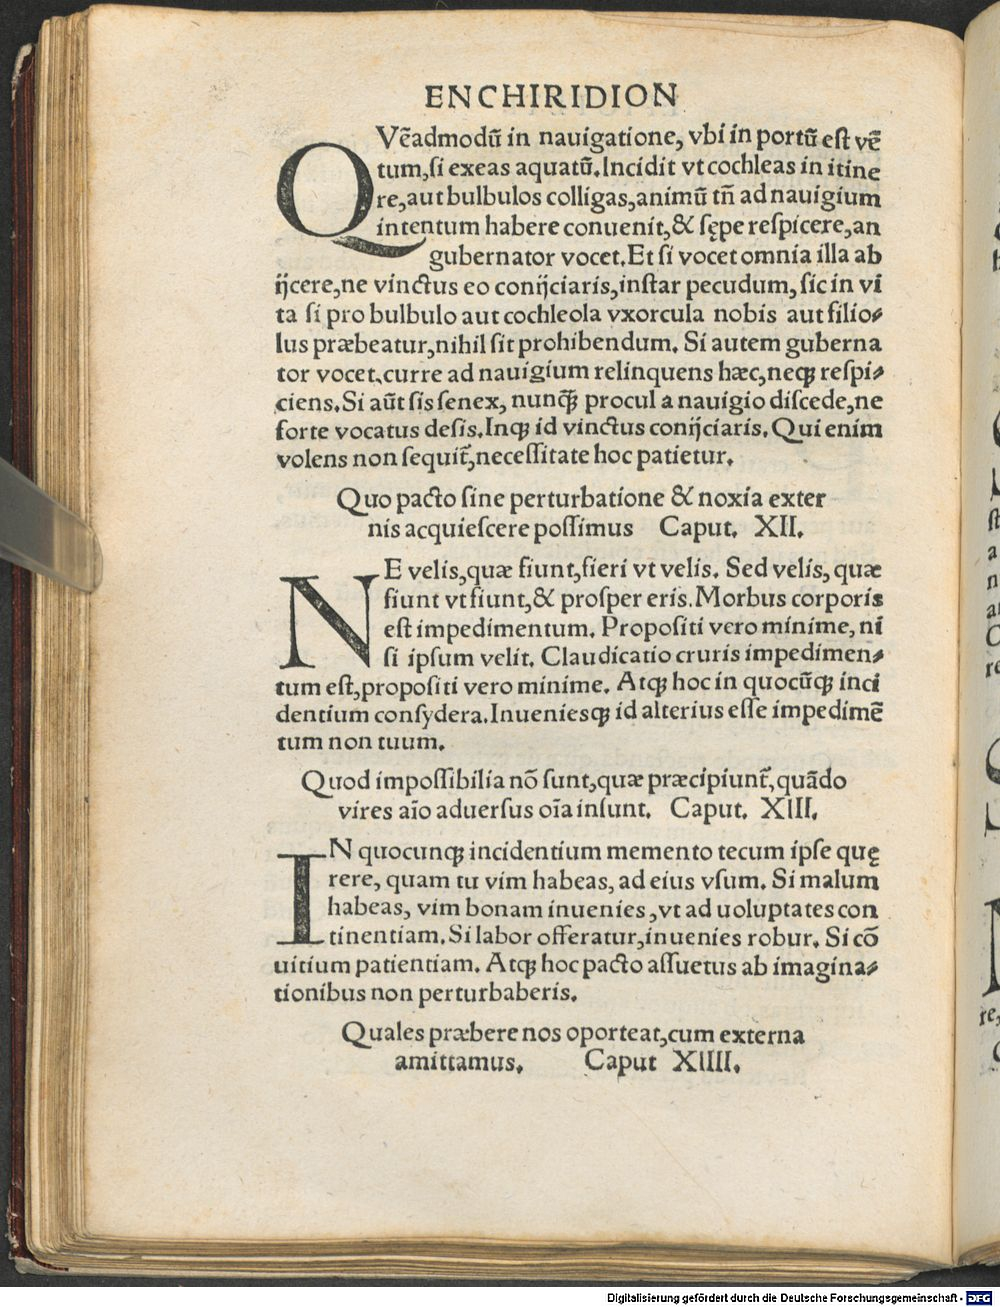 ENCHIRIDION
QVẽadmodũ in nauigatione, vbi in portũ est vẽ
tum, si exeas aquatũ. Incidit vt cochleas in itine
re, aut bulbulos colligas, animũ tñ ad nauigium
intentum habere conuenit, & sępe respicere, an
gubernator vocet. Et si vocet omnia illa ab
ijcere, ne vinctus eo conijciaris, instar pecudum, sic in vi
ta si pro bulbulo aut cochleola vxorcula nobis aut filio⸗
lus præbeatur, nihil sit prohibendum. Si autem guberna
tor vocet, curre ad nauigium relinquens hæc, neqȝ respi⸗
ciens. Si aũt sis senex, nunꝙ̃ procul a nauigio discede, ne
forte vocatus desis. Inqȝ id vinctus conijciaris. Qui enim
volens non sequit̃, necessitate hoc patietur.
Quo pacto sine perturbatione & noxia exter
nis acquiescere possimus Caput. XII.
NE velis, quæ fiunt, fieri vt velis. Sed velis, quæ
fiunt vt fiunt, & prosper eris. Morbus corporis
est impedimentum. Propositi vero minime, ni
si ipsum velit. Claudicatio cruris impedimen⸗
tum est, propositi vero minime. Atqȝ hoc in quocũqȝ inci
dentium consydera. Inueniesqȝ id alterius esse impedimẽ
tum non tuum.
Quod impossibilia nõ sunt, quæ præcipiunt̃, quãdo
vires aĩo aduersus oĩa insunt. Caput. XIII.
IN quocunqȝ incidentium memento tecum ipse quę
rere, quam tu vim habeas, ad eius vsum. Si malum
habeas, vim bonam inuenies, vt ad uoluptates con
tinentiam. Si labor offeratur, inuenies robur. Si cõ
uitium patientiam. Atqȝ hoc pacto assuetus ab imagina⸗
tionibus non perturbaberis.
Quales præbere nos oporteat, cum externa
amittamus. Caput XIIII.
Digitalisierung gefördert durch die Deutsche Forschungsgemeinschaft - DFG